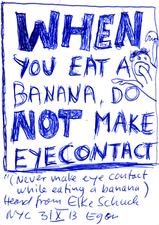 WHEN
YOU EAT A
BANANA, DO
NOT MAKE
EYECONTACT
"(Never make eye contact
while eating a banana)
Heard from Elke Schuch
NYC 3|X|13 Egon